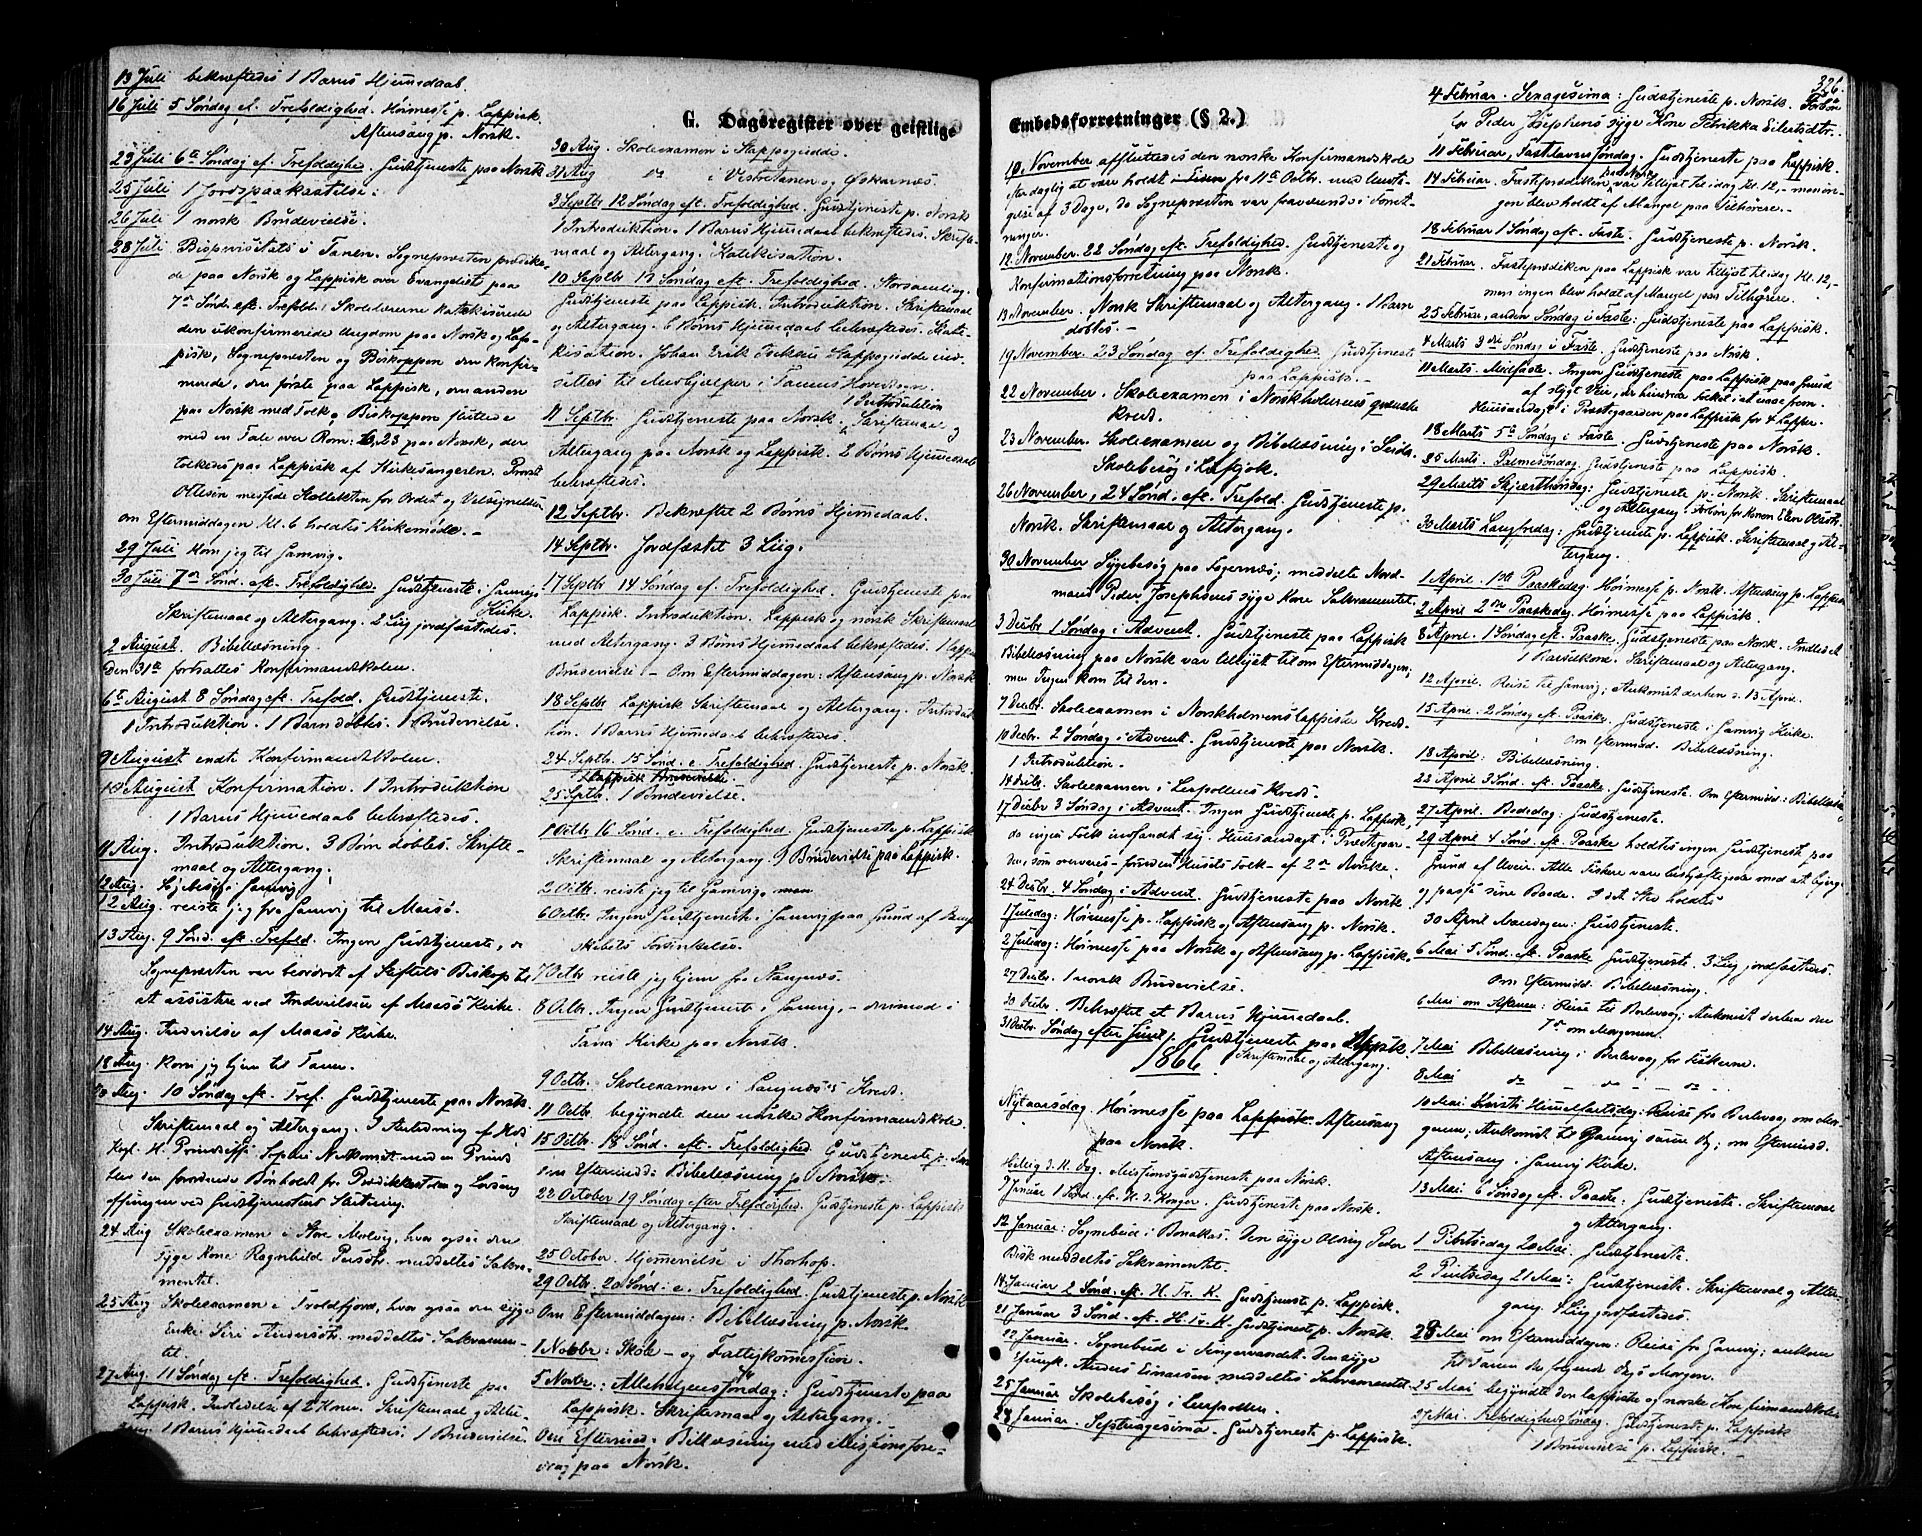 13 Juli bekræftedes 1 Barns Hjemmedaab.
16 Juli 5 Søndag ef. Trefoldighed. Høimesse p. Lappisk.
Aftensang p. Norsk.
G. Dagsregister over geistlige
23 Juli 6te Søndag ef. Trefoldighed. Gudstjeneste paa Norsk
25 Juli 1 Jordspaakastelse.
26 Juli 1 norsk Brudevielse.
28 Juli Bispevisitats i Tanen. Sognepresten prædike-
de paa Norsk og Lappisk over Evangeliet paa
7de Sønd. eft. Trefold: Skolelærerne katekiserede
den ukonfirmerede Ungdom paa Norsk og Lap-
pisk, Sognepresten og Biskoppen den Konfir-
merede, den første paa Lappisk, den anden
paa Norsk med Tolk. Biskoppen sluttede
med en Tale over Rom: 6,23 paa Norsk, der
tolkedes paa Lappisk af Kirkesangeren. Provst
Ottesen messede Kollekten for Ordet og Velsignelsen
om Eftermiddagen Kl. 6 holdtes Kirkemøde.
29 Juli kom jeg til Gamvig.
30 Juli 7de Sønd. eft. Trefoldighed. Gudstjeneste i Gamvigs
Kirke
Skriftemaal og Altergang. 2 Liig jordfæstedes.
2 August. Bibellæsning.
Den 31te fortsattes Konfirmandskolen.
6te August 8 Søndag eft. Trefold. Gudstjeneste.
1 Introduktion. 1 Barn døbtes. 1 Brudevielse.
9 August endte Konfirmandskolen.
10 August Konfirmation. 1 Introduktion
1 Barns Hjemmedaab bekræftedes.
11 Aug. Introduktion. 3 Børn døbtes. Skrifte-
maal og Altergang.
12 Aug. i Gamvig
12 Aug. reiste jeg fra Gamvig til Maasø.
13 Aug. 9 Sønd. eft. Trefold. Ingen Gudstjeneste, da
Sognepræsten var beordret af Stiftets Biskop til
at assistere ved Indvielsen af Maasø Kirke.
14 Aug. Indvielse af Maasø Kirke.
18 Aug. kom jeg hjem til Tanen.
20 Aug. 10 Søndag eft. Tref. Gudstjeneste paa Norsk.
Skriftemaal og Altergang. I Anledning af Hds
Kgl. H. Prindsesse Sophie Nedkomst med en Prinds
blev den forordnede Bønholdt fra Prædikestolen og Lovsang
ofsunget ved Gudstjenestens Slutning.
24 Aug Skoleexamen i Store Molvig, hvor ogsaa den
syge Kone Ragnhild Persdtr. meddeltes Sakra-
mentet.
25 Aug Skoleexamen i Troldfjord, hvor ogsaa den syge
Enke Siri Andersdtr. meddeltes Sakramen-
tet.
27 Aug. 11 Søndag eft. Trefoldighed. Gudstjeneste paa
Lappisk. Indledelse af 2 Koner. Skriftemaal og Alter-
gang. 1 Barns Hjemmedaab bekræftedes. 1 Brudevielse.
30 Aug. Skoleexamen i Stappogiedde.
31 Aug do i Vestretanen og Øskarnæs.
3 Septbr 12 Søndag eft. Trefoldighed. Gudstjeneste p. Norsk
1 Introduktion. 1 Barns Hjemmedaab bekræftedes. Skrifte-
maal og Altergang. Katekisation.
10 Septbr 13 Søndag eft. Trefoldighed. Storsamling.
Gudstjeneste paa Lappisk. Introduktion. Skriftemaal
og Altergang. 6 Børns Hjemmedaab bekræftedes. Kate-
kisation. Johan Erik Stappogiedde ind-
settes til Medhjælper i Tanens Hovedsogn.
1 Introduktion
11 Septbr. Gudstjeneste paa Norsk. Skriftemaal og
Altergang paa Norsk og Lappisk. 2 Børns Hjemmedaab
bekræftedes.
12 Septbr. Bekræftet 2 Børns Hjemmedaab.
14 Septbr. Jordfæstet 3 Liig.
17 Septbr 14 Søndag ef. Trefoldighed. Gudstjeneste paa
Lappisk. Introduktion. Lappisk og norsk Skriftemaal
med Altergang. 3 Børns Hjemmedaab bekræftedes. 1 lappisk
Brudevielse. – Om Eftermiddagen: Aftensang p. Norsk
18 Septbr Lappisk Skriftemaal og Altergang. Introduk-
tion. 1 Barns Hjemmedaab bekræftedes.
24 Septbr. 15 Sønd. e. Trefoldighed. Gudstjeneste p. Norsk.
1 lappisk Brudevielse.
25 Septbr. 1 Brudevielse.
1 Octbr 16 Sønd. e. Trefoldighed. Gudstjeneste p. Lappisk
Skriftemaal og Altergang. 9 Brudevielse paa Lappisk.
2 Octbr. reiste jeg til Gamvig, men
6 Octbr. Ingen Gudstjeneste i Gamvig paa Grund af Damp-
skibets Forsinkelse.
7 Octbr reiste jeg hjem fra Nangnæs.
8 Octbr. Ingen Gudstjeneste i Gamvig, – derimod i
Tana Kirke paa Norsk.
9 Octbr. Skoleexamen i Langnæs's Kreds.
11 Octbr. begyndte den norske Konfirmandskole.
15 Octbr. 18 Sønd. eft. Trefoldighed. Gudstjeneste p.
om Eftermidd: Bibellæsning p. Norsk.
22 October 19 Søndag efter Trefoldighed. Gudstjeneste p. Lappisk
Skriftemaal og Altergang.
25 October Hjemmevielse i Thorhop.
29 Octbr. 20 Sønd. e. Trefoldighed. Gudstjeneste p. Norsk
Om Eftermiddagen: Bibellæsning p. Norsk.
1 Novbr: Skole- og Fattigkommission.
5 Novbr.: Allehelgenssøndag: Gudstjeneste paa
Lappisk. Skriftemaal og Altergang.
Om Eftermid. Bibellæsning med Missionsfore-
drag paa Norsk.
Embedsforretninger (§ 2.)
326
10. November affluttedes den norske Konfirmandskole
efter daglig at være holdt siden fra 11te Octbr. med Undta-
gelse af 3 Dage, da Sognepræsten var fraværende i Forret-
ninger.
12. November. 22 Søndag eft. Trefoldighed. Gudstjeneste og
Konfirmationsforretning paa Norsk.
13 November. Norsk Skriftemaal og Altergang. 1 Barn
døbtes. –
19 November. 23 Søndag ef. Trefoldighed Gudstjeneste
paa Lappisk. –
22 November. Skoleexamen i Norskholmens norske
Kreds.
23 November. Skoleexamen og Bibellæsning i Seida.
Skolebesøg i Luftjok.
26 November, 24 Sønd. eft. Trefold. Gudstjeneste p.
Norsk. Skriftemaal og Altergang.
30 November Sygebesøg paa Fagernæs; meddelte Nord-
mann Peder Josephsens syge Kone Sakramentet.
3 Decbr 1 Søndag i Advent. Gudstjeneste paa Lappisk
Bibellæsning paa Norsk var tillyst til om Eftermiddagen;
men Ingen kom til den.
7 Decbr. Skoleexamen i Norskholmens lappiske Kreds.
10 Decbr. 2 Søndag i Advent. Gudstjeneste paa Norsk.
1 Introduktion.
14 Decbr. Skoleexamen i Leerpollens Kreds.
17 Decbr 3 Søndag i Advent. Ingen Gudstjeneste p. Lappisk,
da ingen Folk indfandt sig. Huusandagt i Præstegaar-
den, som overværes – foruden Husets Folk – af 2de Norske.
24 Decbr. 4 Søndag i Advent. Gudstjeneste paa Norsk
1 Juledag: Høimesse p. Lappisk og Aftensang p. Norsk.
2 Juledag: Høimesse paa Norsk og Aftensang p. Lappisk.
27 Decbr. 1 norsk Brudevielse.
30 Decbr Bekræftet et Barns Hjemmedaab.
31 Decbr. Søndag efter Juul: Gudstjeneste paa Lappisk.
1866 Skriftemaal og Altergang.
Nytaarsdag. Høimesse paa Lappisk. Aftensang
paa Norsk.
Hellig 3. K. Dag. Missionsgudstjeneste paa Norsk.
7 Januar 1 Sønd. eft. H. 3. Konger. Gudstjeneste paa Norsk.
12 Januar: Sognebud i Bonakas. Den syge Olding Peder
Bisk meddeltes Sakramentet.
14 Januar 2 Sønd. eft. H. Tr. K. Gudstjeneste p. Lappisk.
21 Januar 3 Sønd. eft. H. Tr. K. Gudstjeneste p. Norsk.
22 Januar. Sognebud i Mingervandet. Den syge
Anders Einarsen meddeltes Sakramentet.
25 Januar Skolebesøg i Leerpollen.
28 Januar. Septuagesima. Gudstjeneste p. Lappisk.
4 Februar. Sexagesima: Gudstjeneste p. Norsk. Forbøn
for Peder Josephsens syge Kone Petrikka Eilertsdtr.
11 Februar, Fastelavnssøndag. Gudstjeneste paa Lappisk.
14 Februar. Fasteprædiken paa Norsk var tillyst til idag Kl. 12, – men in-
gen blev holdt af Mangel paa Tilhørere. –
18 Februar 1 Søndag eft. Faste. Gudstjeneste p. Norsk.
21 Februar. Fasteprædiken paa Lappisk var tillyst til idag Kl. 12, –
men ingen blev holdt af Mangel paa Tilhørere.
25 Februar, anden Søndag i Faste: Gudstjeneste paa Lappisk.
4 Marts 3die Søndag i Faste. Gudstjeneste paa Norsk.
11 Marts. Midfaste. Ingen Gudstjeneste paa Lappisk paa Grund
af stygt Veir, der hindrede Folket i at komme frem.
Huusandagt i Præstegaarden paa Lappisk for 4 Lapper.
18 Marts 5te Søndag i Faste. Gudstjeneste paa Norsk.
25 Marts. Palmesøndag. Gudstjeneste paa Lappisk.
29 Marts Skjærthorsdag: Gudstjeneste p. Norsk. Skriftemaal
og Altergang. Forbøn for Konen Elen Olsdtr.
30 Marts Langfredag: Gudstjeneste p. Lappisk. Skriftemaal og Al-
tergang.
1 April. 1ste Paaskedag. Høimesse p. Norsk. Aftensang p. Lappisk
2 April 2den Paaskedag Høimesse paa Lappisk.
8 April. 1 Søndag eft. Paaske. Gudstjeneste paa Norsk. Indledet
1 Barselkone. Skriftemaal og Altergang.
12 April. Reise til Gamvig; Ankomst derhen d. 13 April.
15 April. 2 Søndag eft. Paaske. Gudstjeneste i Gamvig Kirke.
Om Eftermidd. Bibellæsning.
18 April: Bibellæsning.
22 April 3 Sønd. eft. Paaske. Gudstjeneste. Om Eftermidd: Bibellæsning
27 April. Bededag: Gudstjeneste.
29 April 4 Sønd. eft. Paaske holdtes ingen Gudstjeneste paa
Grund af Uveir. Alle Fiskere vare beskjæftigede med at bjerge
og passe sine Baade. I det Sted holdtes
30 April Mandagen: Gudstjeneste.
6 Mai 5 Sønd. eft. Paaske Gudstjeneste. 3 Liig jordfæstedes.
Om Eftermidd. Bibellæsning.
6 Mai om Aftenen: Reise til Berlevaag; Ankomst derhen den
7de om Morgenen.
7 Mai Bibellæsning i Berlevaag for Fiskerne.
8 Mai do – do – do
10 Mai Kristi Himmelfartsdag: Reise fra Berlevaag om Mor-
genen; Ankomst til Gamvig samme Dag; om Eftermidd.
Aftensang i Gamvig Kirke.
13 Mai 6 Søndag eft. Paaske. Gudstjeneste. Skriftemaal
og Altergang.
1 Pintsedag 20 Mai. Gudstjeneste.
2 Pintsedag 21 Mai: Gudstjeneste. Skriftemaal og Alter-
gang. 1 Liig jordfæstedes.
23 Mai om Eftermiddagen: Reise fra Gamvig; ankom
til Tanen den følgende Dags Morgen.
25 Mai begyndte den lappiske og norske Konfirmandskole.
27 Mai. Trefoldighedssøndag. Gudstjeneste p. Lappisk
1 Brudevielse p. Lappisk. –